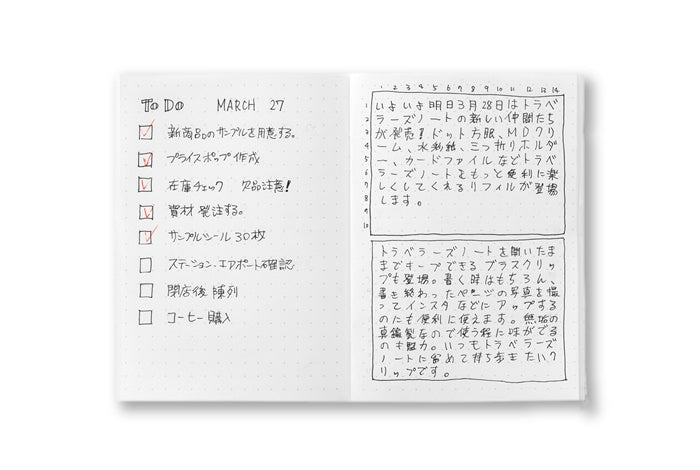 To Do MARCH 27
新商品のサンプルを用意する。
プライスポップ作成
在庫チェック 欠品注意!
資材発注する。
サンプルシール30枚
ステーション、エアポート確認
閉店後 陳列
コーヒー購入
1 2 3 4 5 6 7 8 9 10 11 12 13 14
1 いよいよ明日3月28日はトラベ
2 ラーズノートの新しい仲間たち
3 が発売!ドット方眼、MDクリ
4 ーム、水彩紙、三つ折りホルダ
5 ー、カードファイルなどトラベ
6 ラーズノートをもっと便利に楽
7 しくしてくれるリフィルが登場
8 します。
9
10
トラベラーズノートを開いたま
までキープできるブラスクリッ
プも登場。書く時はもちろん、
書き終わったページの写真を撮
ってインスタなどにアップする
のにも便利に使えます。無垢の
真鍮製なので使う程に味がでる
のも魅力。いつもトラベラーズ
ノートに留めて持ち歩きたいク
リップです。